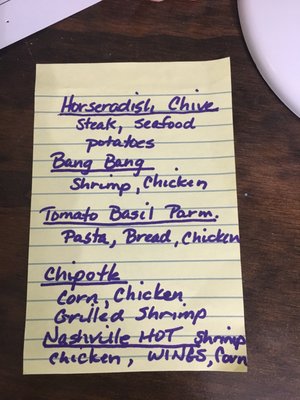 Horseradish Chive
Steak, Seafood
potatoes
Bang Bang
Shrimp, Chicken
Tomato Basil Parm.
Pasta, Bread, Chicken
Chipotle
Corn, Chicken
Grilled Shrimp
Nashville HOT Shrimp
Chicken, WINGS, Corn